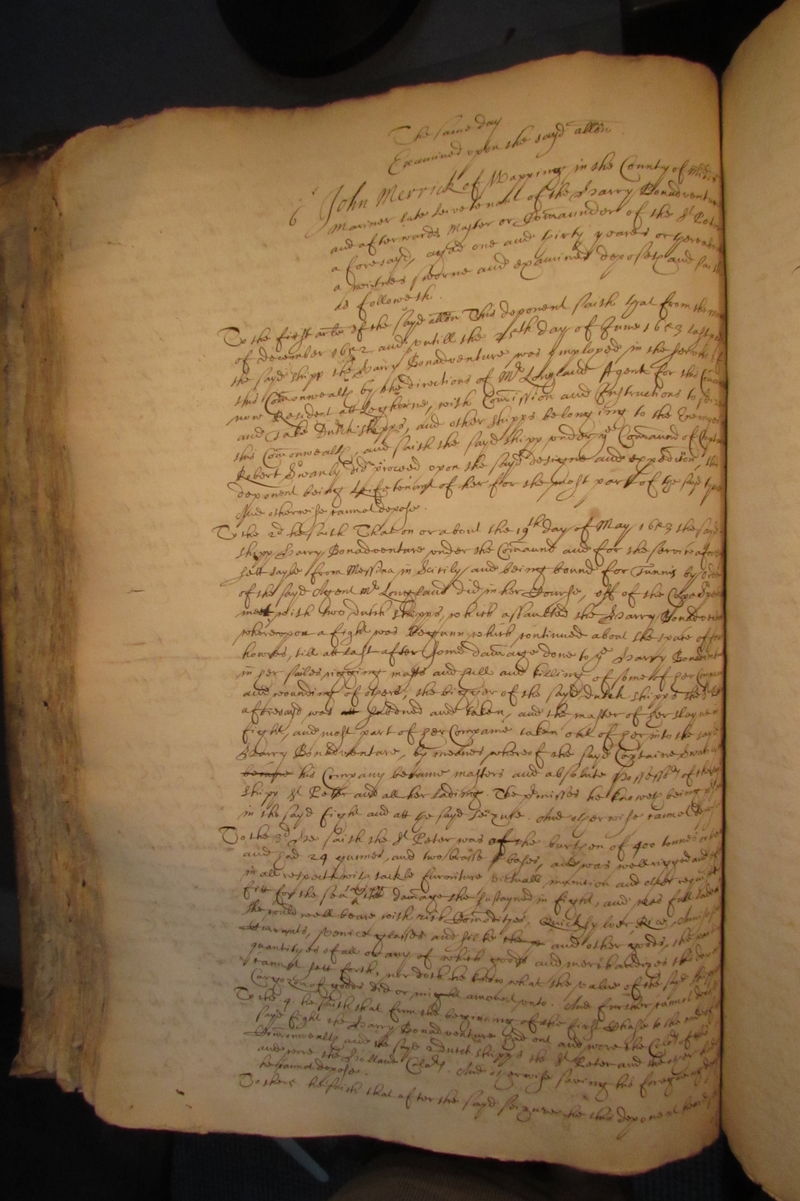 The same day
Examined upon the sayd allon
6
John Merrick of Wapping in the County of
Mariner late Leivetenant of the Harry Bonadventure
and afterwards Master or Comaunder of the St Peter
aforesayd, aged one and thirty yeares or thereabouts
a witnes sworne and examined deposeth and saith
as followeth.
To the first arle of the sayd allon This deponent saith that from the
of december 1652 and untill the day of June 1653 last
the sayd shipp the Harry Bonadventure was imployed in the service of
this Comonwealth by the directions of Mr Longland Agent for this
now Resident att Legborne, with Comission and Instructions to
and Take dutch shipps, and other shipps belonging to the Enemyes
this Comonwealth, and saith the sayd shipp under ye Comaund of Captaine
Robert Swanly did proceed upon the sayd designe and expedicon, this
deponent being Leivetenant of her for the most part of the sayd tyme
And otherwise cannot depose.
To the 2d he saith That on or about the 19th day of May 1653 the sayd
shipp Harry Bonadventure under the Comaund and for the service
sett sayle from Messina in Scicily, and being bound for Tunnis by order
of the sayd Agent Mr Longland did in her Course, off of the
mett with two dutch shipps, which assaulted the Harry Bonadventure
whereupon a fight was begunn, which continued about the space of
howres, till at last after some damage done to ye Harry Bonadventure
in her sailes rigging masts and hull and killing of some of her Company
and wounding of others, the bigger of the sayd dutch shipps the St
was and taken, and the master of her slayne
fight, and most part of her Companie taken out of her into the sayd
Harry Bonadventure, by meanes whereof the sayd Captaine Swanly
his Company became masters and absolute Possessors of the
shipp St Peter and all her ladeing. The premisses he knoweth being
in the sayd fight and att the sayd seizure. And otherwise cannot depose
To the 3d he saith the St Peter was of the burthen of 400 tonnes
and had 24 gunnes, and two brasse bases, and was well rigged and
in all respects with tackle furniture and other
fitt for the sea the damage she sustayned in fight, and was full laden
she could well beare with rich Comodityes, Quicksylver Rice
Venice glasses and silke and other goods, the
quantityes of all or any of which goods and merchandizes this
cannot sett forth, nor doth he know what the value of the sayd shipp
of goodes did or might amount unto. And further cannot depose
To the 4 he saith that from the beginning of the first Chase to the end of
sayd fight the Harry Bonadventure had out and wore the Colours of
Comonwealth and the sayd 2 dutch shipps the St Peter and the other had
and wore the Holland Colours. And otherwise saveing his foregoeing
he cannot depose.
To the 5 he saith that after the sayd seizure he this deponent